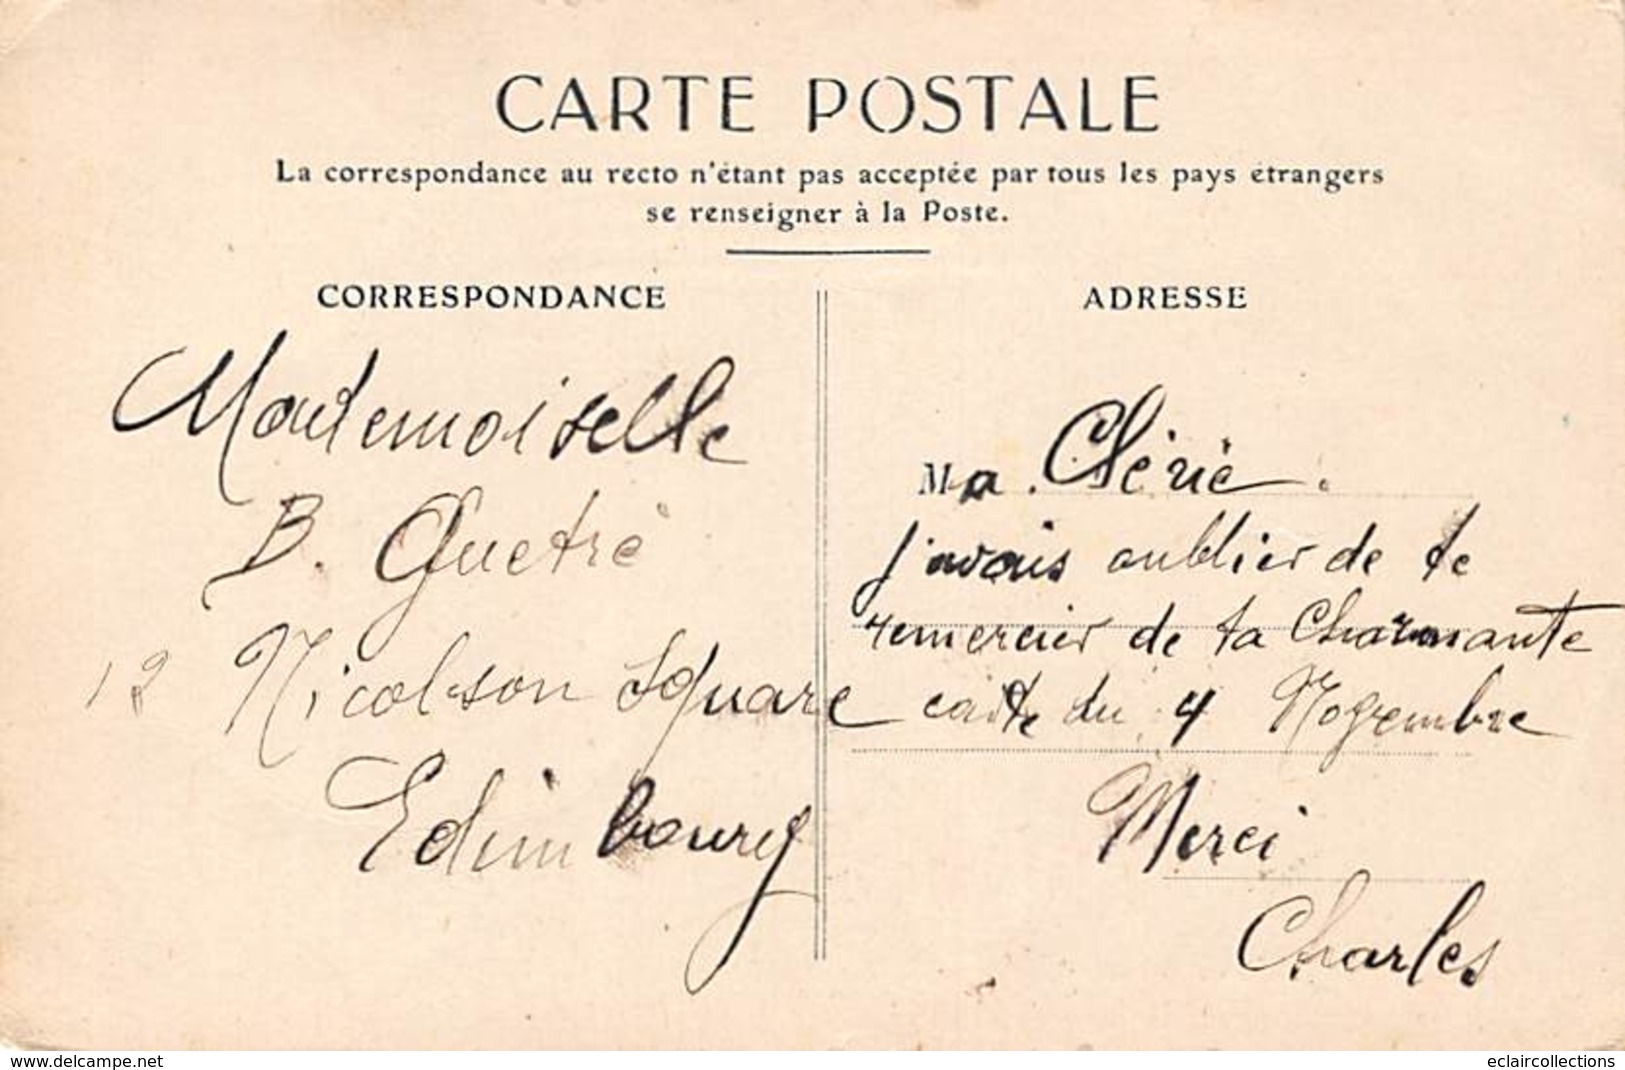 CARTE POSTALE
La correspondance au recto n'étant pas acceptée par tous les pays étrangers
se renseigner à la Poste.
CORRESPONDANCE
Mademoiselle
B. Quetré
12 Nicolson Square
Edimbourg
ADRESSE
Ma Chérie.
j'avais oublier de te
remercier de ta Charmante
carte du 4 Novembre
Merci
Charles
www.delcampe.net
eclaircollections